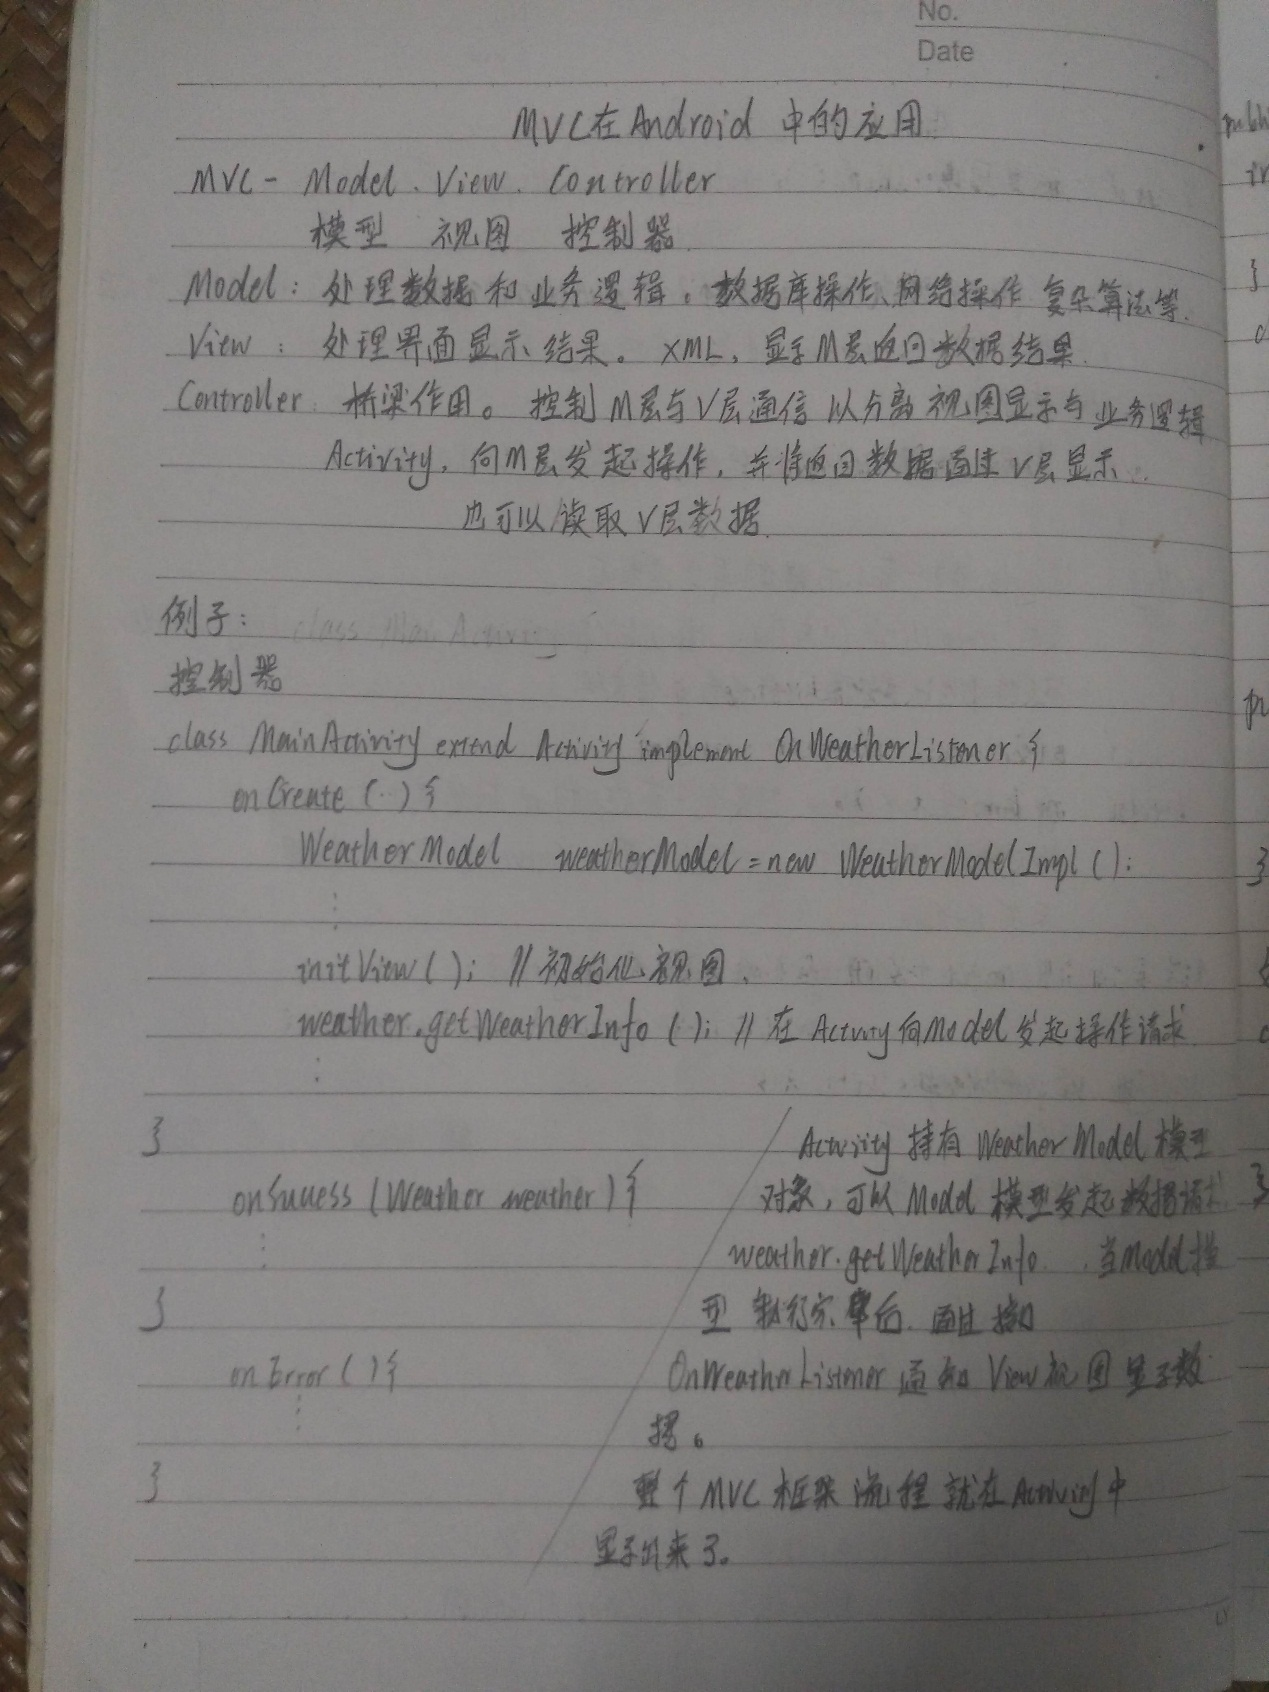 No.
Date
MVC在Android 中的应用
MVC - Model . View . Controller
模型 视图 控制器
Model : 处理数据和业务逻辑。数据库操作、网络操作 复杂算法等.
View : 处理界面显示结果。XML, 显示M层返回数据结果.
Controller: 桥梁作用。控制M层与V层通信 以分离 视图显示与业务逻辑
Activity, 向M层发起操作, 并将返回数据通过V层显示.
也可以读取V层数据.
例子:
控制器
class MainActivity extend Activity implement OnWeatherListener {
onCreate (..) {
WeatherModel weatherModel = new WeatherModelImpl ();
⋮
initView (); // 初始化视图.
weather.getWeatherInfo (); // 在 Activity 向Model 发起操作请求
⋮
}
Activity 持有 WeatherModel 模型
onSuccess (Weather weather) {
对象, 可以 Model 模型发起数据请求
⋮
weather.getWeatherInfo. 当Model模
}
型 执行完毕后. 通过 接口
onError () {
OnWeatherListener 通知 View 视图 显示数
⋮
据。
}
整个 MVC 框架 流程 就在 Activity 中
显示出来了。